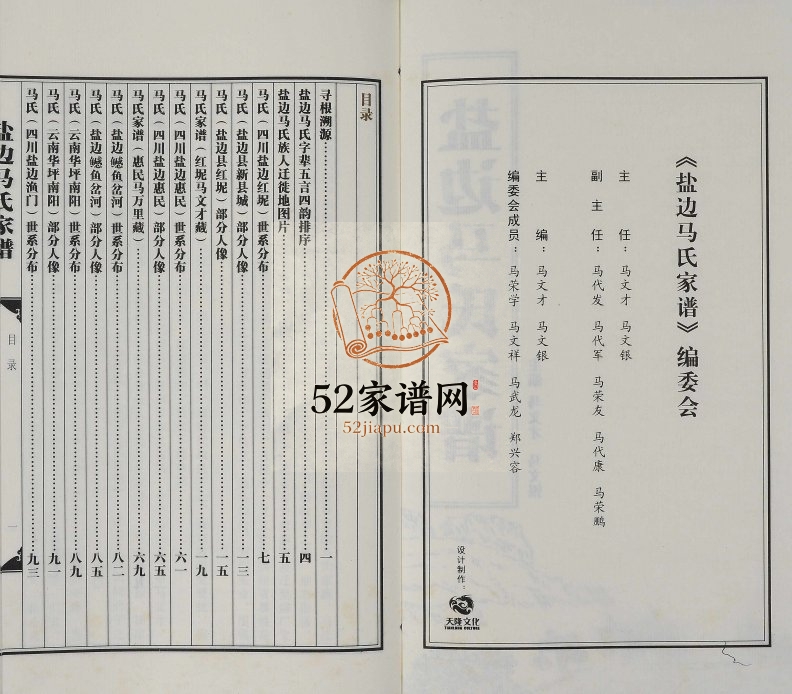 《盐边马氏家谱》编委会
主　任：马文才　马文银
副主任：马代发　马代军　马荣友　马代康　马荣鹏
主　编：马文才　马文银
编委会成员：马荣学　马文祥　马武龙　郑兴容
设计制作：
天隆文化
TIANLONG CULTURE
目录
寻根溯源……一
盐边马氏字辈五言四韵排序……四
盐边马氏族人迁徙地图片……五
马氏（四川盐边红坭）世系分布……七
马氏（盐边县新县城）部分人像……一三
马氏（盐边县红坭）部分人像……一五
马氏家谱（红坭马文才藏）……一九
马氏（四川盐边惠民）世系分布……六一
马氏（四川盐边惠民）部分人像……六五
马氏家谱（惠民马万里藏）……六九
马氏（盐边鳡鱼岔河）世系分布……八二
马氏（盐边鳡鱼岔河）部分人像……八五
马氏（云南华坪南阳）世系分布……八九
马氏（云南华坪南阳）部分人像……九一
马氏（四川盐边渔门）世系分布……九三
盐边马氏家谱
目录
一
52家谱网
52jiapu.com